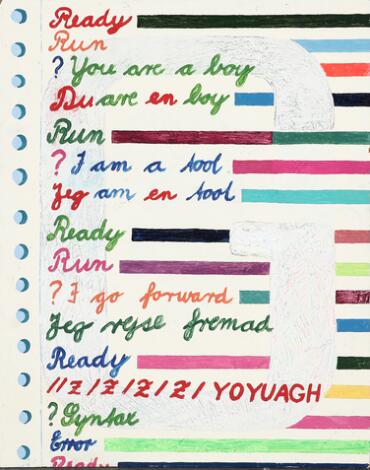 Ready
Run
? You are a boy
Du are en boy
Run
? I am a tool
Jeg am en tool
Ready
Run
? I go forward
Jeg rejse fremad
Ready
//Z/Z/Z/Z/YOYUAGH
? Syntax
Error
Ready